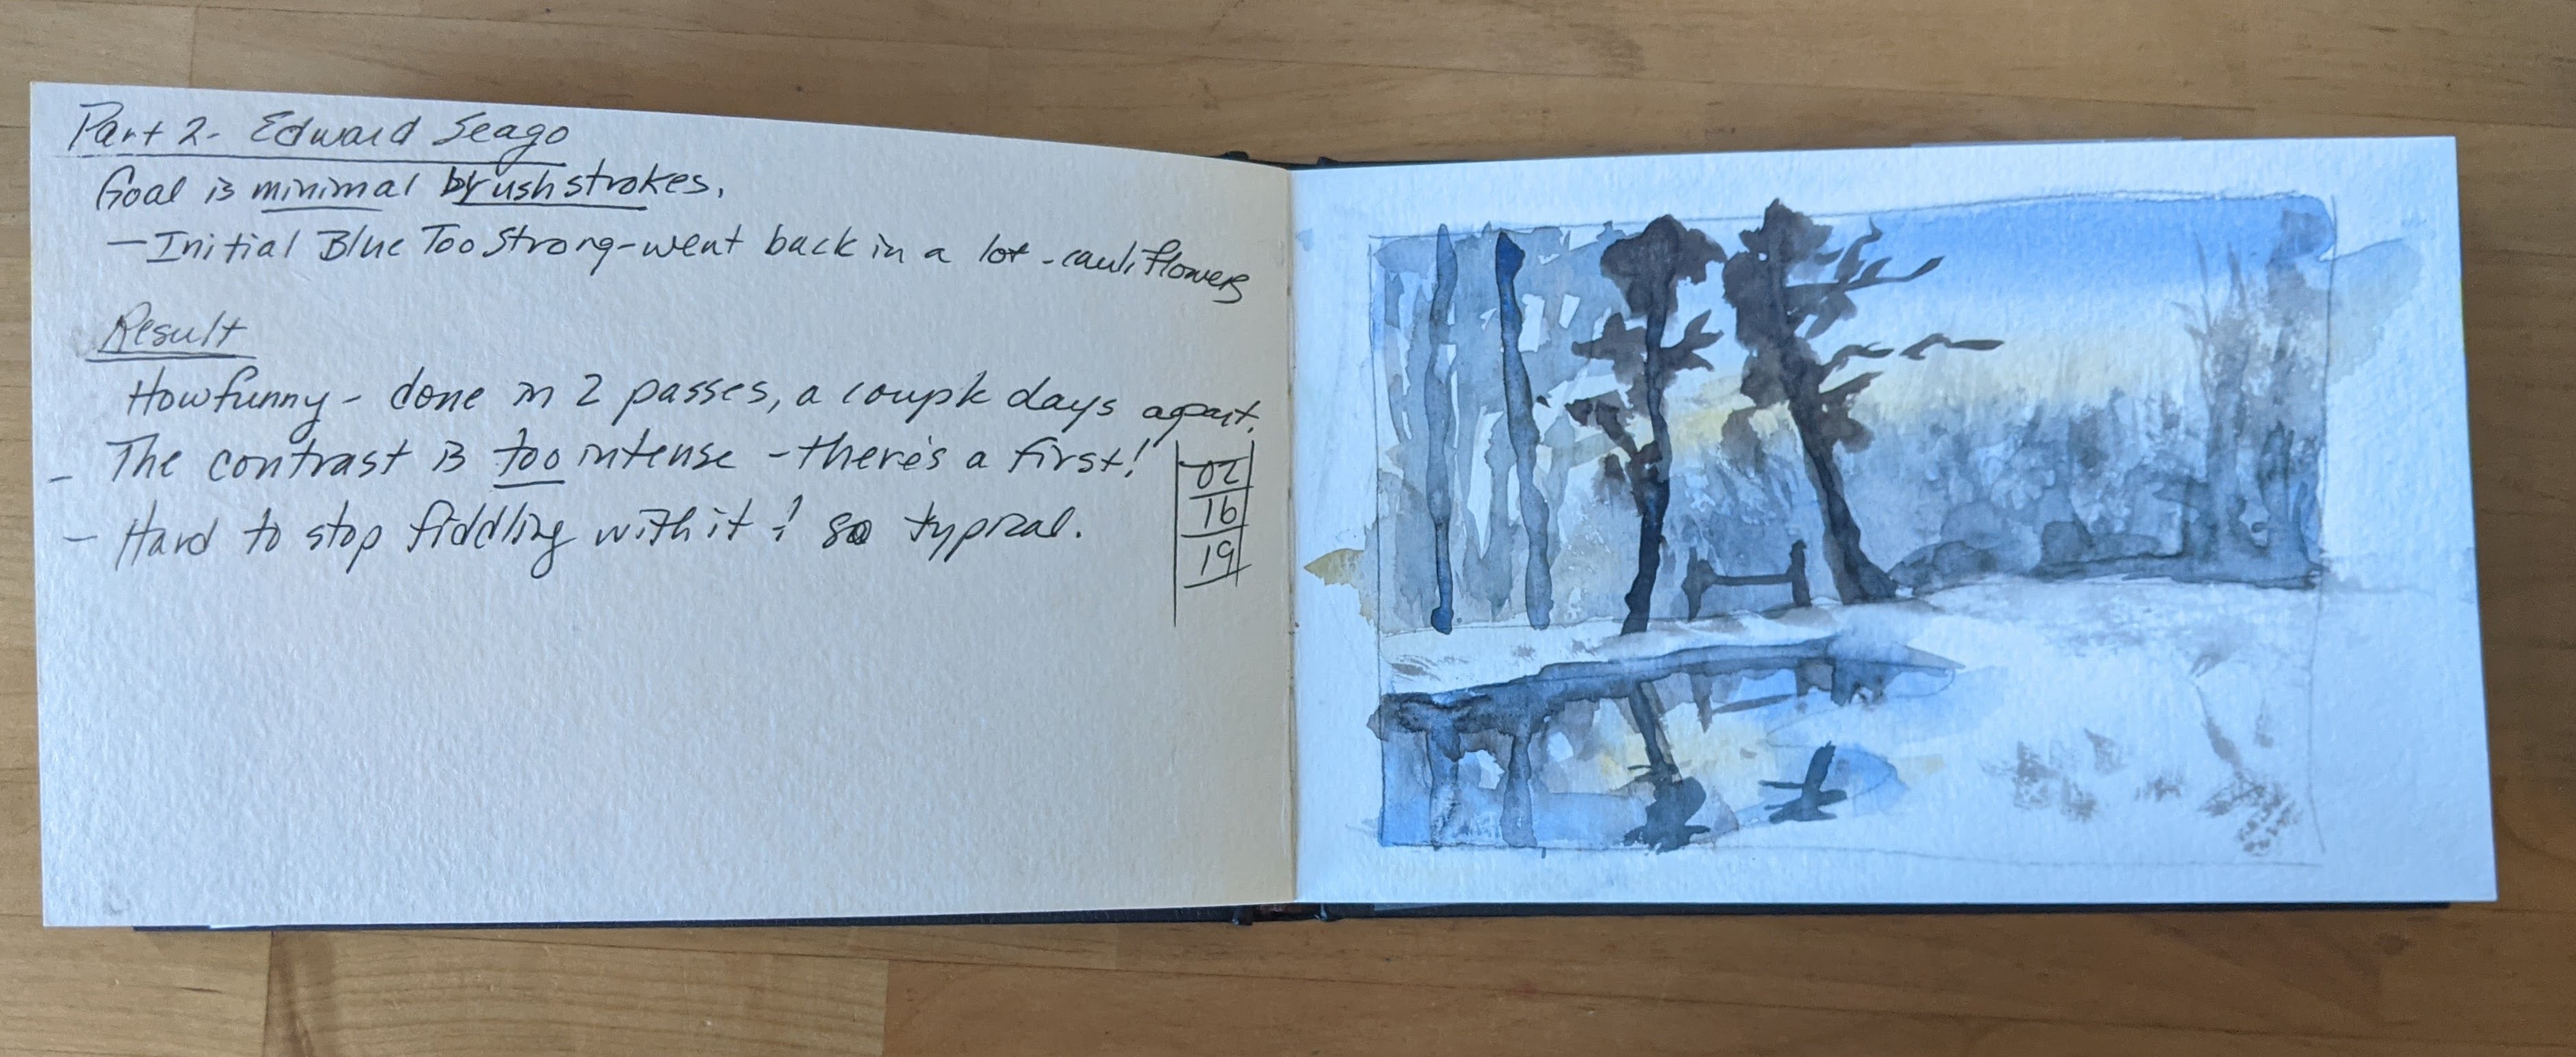 Part 2- Edward Seago
Goal is minimal brushstrokes.
- Initial Blue Too Strong - went back in a lot - cauliflowers
Result
How funny - done in 2 passes, a couple days apart.
- The contrast is too intense - there's a first!
- Hard to stop fiddling with it! so typical.
02
16
19